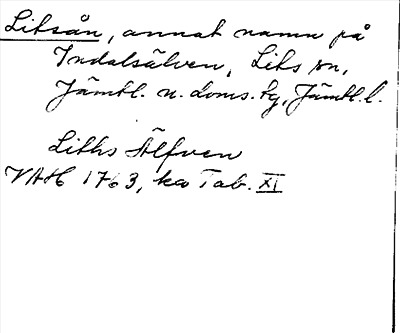 Litsån, annat namn på
Indalsälven, Lits sn,
Jämtl. n. doms. tg, Jämtl. l.
Liths Älfven
VAH 1763, ka Tab. XI